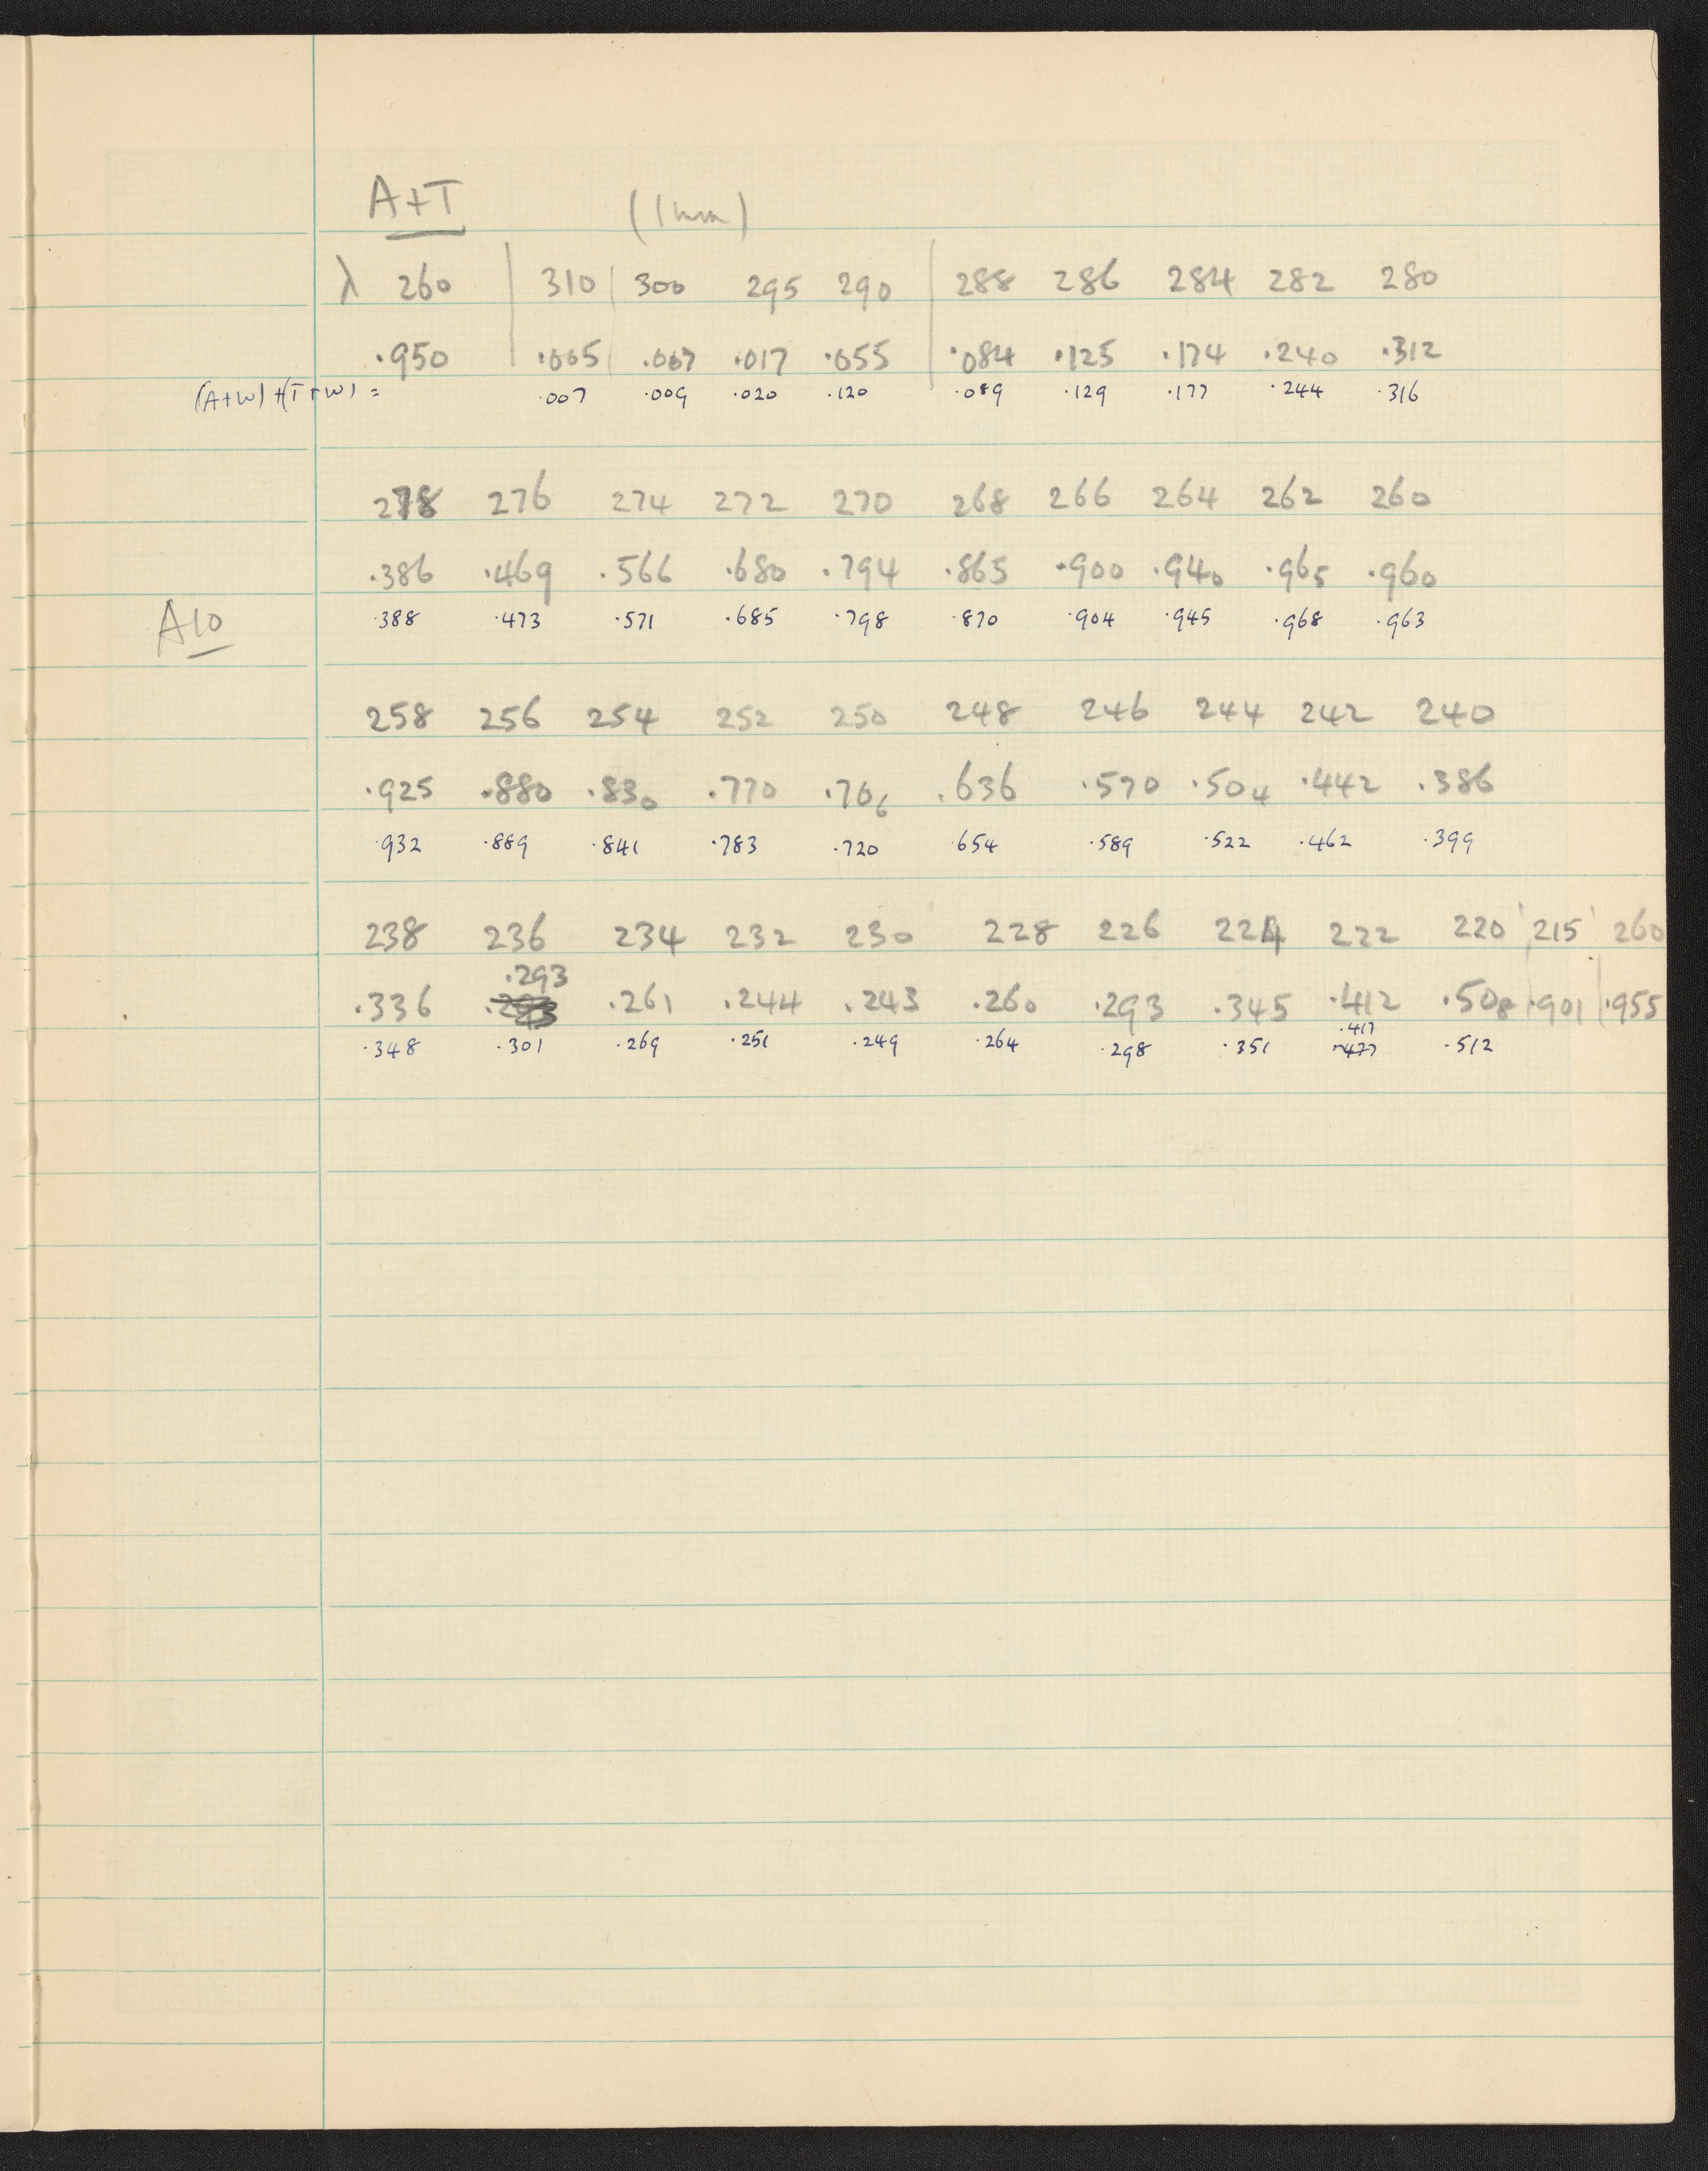 A+T (1 mm)
λ 260 | 310 | 300 295 290 | 288 286 284 282 280
.950 | .005 | .007 .017 .055 | .084 .125 .174 .240 .312
(A+W)+(T+W) = .007 .009 .020 .120 .089 .129 .177 .244 .316
278 276 274 272 270 268 266 264 262 260
.386 .469 .566 .680 .794 .865 .900 .940 .965 .960
A10 .388 .473 .571 .685 .798 .870 .904 .945 .968 .963
258 256 254 252 250 248 246 244 242 240
.925 .880 .830 .770 .706 .636 .570 .504 .442 .386
.932 .889 .841 .783 .720 .654 .589 .522 .462 .399
238 236 234 232 230 228 226 224 222 220 | 215 | 260
.293
.336 .261 .244 .243 .260 .293 .345 .412 .508 | .901 | .955
.417
.348 .301 .269 .251 .249 .264 .298 .351 .477 .512